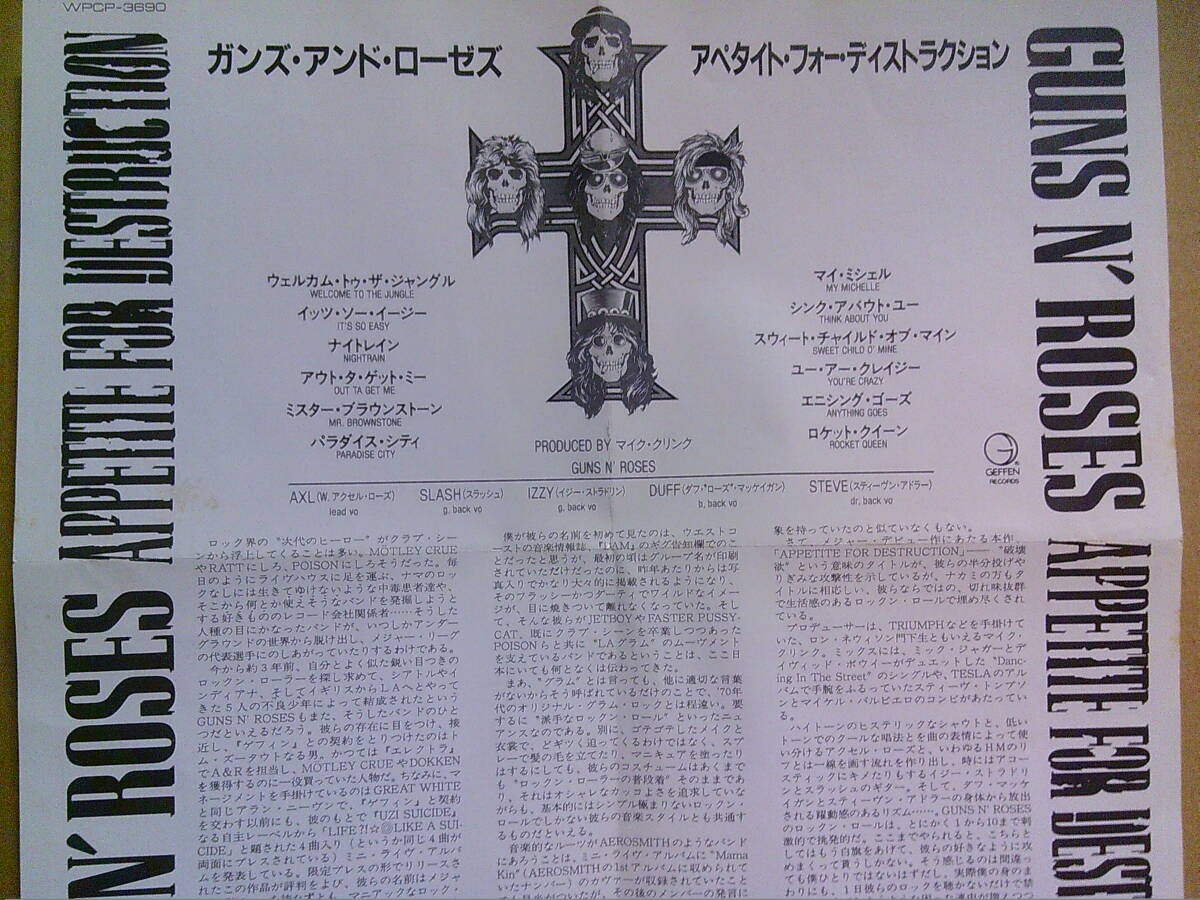 WPCP-3690
ガンズ・アンド・ローゼズ
アペタイト・フォー・ディストラクション
GUNS N' ROSES APPETITE FOR DESTRUCTION
ウェルカム・トゥ・ザ・ジャングル
WELCOME TO THE JUNGLE
イッツ・ソー・イージー
IT'S SO EASY
ナイトレイン
NIGHTRAIN
アウト・タ・ゲット・ミー
OUT TA GET ME
ミスター・ブラウンストーン
MR. BROWNSTONE
パラダイス・シティ
PARADISE CITY
マイ・ミシェル
MY MICHELLE
シンク・アバウト・ユー
THINK ABOUT YOU
スウィート・チャイルド・オブ・マイン
SWEET CHILD O' MINE
ユー・アー・クレイジー
YOU'RE CRAZY
エニシング・ゴーズ
ANYTHING GOES
ロケット・クイーン
ROCKET QUEEN
PRODUCED BY マイク・クリンク
GUNS N' ROSES
GEFFEN
RECORDS
AXL (W. アクセル・ローズ)
lead vo
SLASH (スラッシュ)
g, back vo
IZZY (イジー・ストラドリン)
g, back vo
DUFF (ダフ・"ローズ"・マッケイガン)
b, back vo
STEVE (スティーヴン・アドラー)
dr, back vo
ロック界の"次代のヒーロー"がクラブ・シー
ンから浮上してくることは多い。MÖTLEY CRUE
やRATTにしろ、POISONにしろそうだった。毎
日のようにライヴハウスに足を運ぶ、ナマのロッ
クなしには生きてゆけないような中毒患者達や、
そこから何とか使えそうなバンドを発掘しようと
する好きもののレコード会社関係者……そうした
人種の目にかなったバンドが、いつしかアンダー
グラウンドの世界から脱け出し、メジャー・リーグ
の代表選手にのしあがっていたりするわけである。
今から約3年前、自分とよく似た鋭い目つきの
ロックン・ローラーを探し求めて、シアトルやイン
ディアナ、そしてイギリスからLAへとやって
きた5人の不良少年によって結成されたという
GUNS N' ROSESもまた、そうしたバンドのひと
つだといえるだろう。彼らの存在に目をつけ、接
近し、『ゲフィン』との契約をとりつけたのはト
ム・ズータウなる男。かつては『エレクトラ』
でA&Rを担当し、MÖTLEY CRUEやDOKKEN
を獲得するのに一役買っていた人物だ。ちなみに、マ
ネージメントを手掛けているのはGREAT WHITE
と同じアラン・ニーヴンで、『ゲフィン』と契約
を交わす以前にも、彼のもとで『UZI SUICIDE』
なる自主レーベルから「LIFE?!☆◎LIKE A SUI-
CIDE」と題された4曲入り(というか同じ4曲が
両面にプレスされている)ミニ・ライヴ・アルバ
ムを発表している。限定プレスの形でリリースさ
れたこの作品が評判をよび、彼らの名前はメジャ
僕が彼らの名前を初めて見たのは、ウエストコ
ーストの音楽情報誌、『BAM』のギグ告知欄でのこ
とだったと思うが、最初の頃はグループ名が印刷
されていただけだったのに、昨年あたりからは写
真入りでかなり大々的に掲載されるようになり、
そのフラッシーかつダーティでワイルドなイメー
ジが、目に焼きついて離れなくなっていた。そし
て、そんな彼らがJETBOYやFASTER PUSSY-
CAT、既にクラブ・シーンを卒業しつつあった
POISONらと共に"LAグラム"のムーヴメント
を支えているバンドであるということは、ここ日
本にいても何となくは伝わってきた。
まあ、"グラム"とは言っても、他に適切な言葉
がないからそう呼ばれているだけのことで、'70年
代のオリジナル・グラム・ロックとは程遠い。要
するに"派手なロックン・ロール"といったニュ
アンスなのである。別に、ゴテゴテしたメイクと
衣装で、どギツく迫ってくるわけではなく、スプ
レーで髪の毛を立てたり、マニキュアを塗ったり
はするにしても、彼らのコスチュームはあくまで
も"ロックン・ローラーの普段着"そのままであ
り、それはオシャレなカッコよさを追求していな
がらも、基本的にはシンプル極まりないロックン・
ロールでしかない彼らの音楽スタイルとも共通す
るものだといえる。
音楽的なルーツがAEROSMITHのようなバンド
にあろうことは、ミニ・ライヴ・アルバムに"Mama
Kin"(AEROSMITHの1stアルバムに収められて
いたナンバー)のカヴァーが収録されていたこと
象を持っていたのと似ていなくもない。
さて、メジャー・デビュー作にあたる本作、
「APPETITE FOR DESTRUCTION」――"破壊
欲"という意味のタイトルが、彼らの半分投げや
りぎみな攻撃性を示しているが、ナカミの方もタ
イトルに相応しい、彼らならではの、切れ味抜群
で生活感のあるロックン・ロールで埋め尽くされ
ている。
プロデューサーは、TRIUMPHなどを手掛けて
いた、ロン・ネヴィソン門下生ともいえるマイク・
クリンク。ミックスには、ミック・ジャガーとデ
イヴィッド・ボウイーがデュエットした"Danc-
ing In The Street"のシングルや、TESLAのアル
バムで手腕をふるっていたスティーヴ・トンプソ
ンとマイケル・バルビエロのコンビがあたってい
る。
ハイトーンのヒステリックなシャウトと、低い
トーンでのクールな唱法とを曲の表情によって使
い分けるアクセル・ローズと、いわゆるHMのリ
フとは一線を画す流れを作り出し、時にはアコー
スティックにキメたりもするイジー・ストラドリ
ンとスラッシュのギター。そして、ダフ・マッケ
イガンとスティーヴン・アドラーの身体から放出
される躍動感のあるリズム……。GUNS N' ROSES
のロックン・ロールは、とにかく1から10まで刺
激的で挑発的だ。ここまでやられると、こちらと
してはもう白旗をあげて、彼らの好きなように攻
めまくって貰うしかない。そう感じるのは間違っ
ても僕ひとりではないはずだし、実際僕の身のま
わりにも、1日彼らのロックを聴かないだけで禁
N' ROSES APPETITE FOR DESTRUCTION